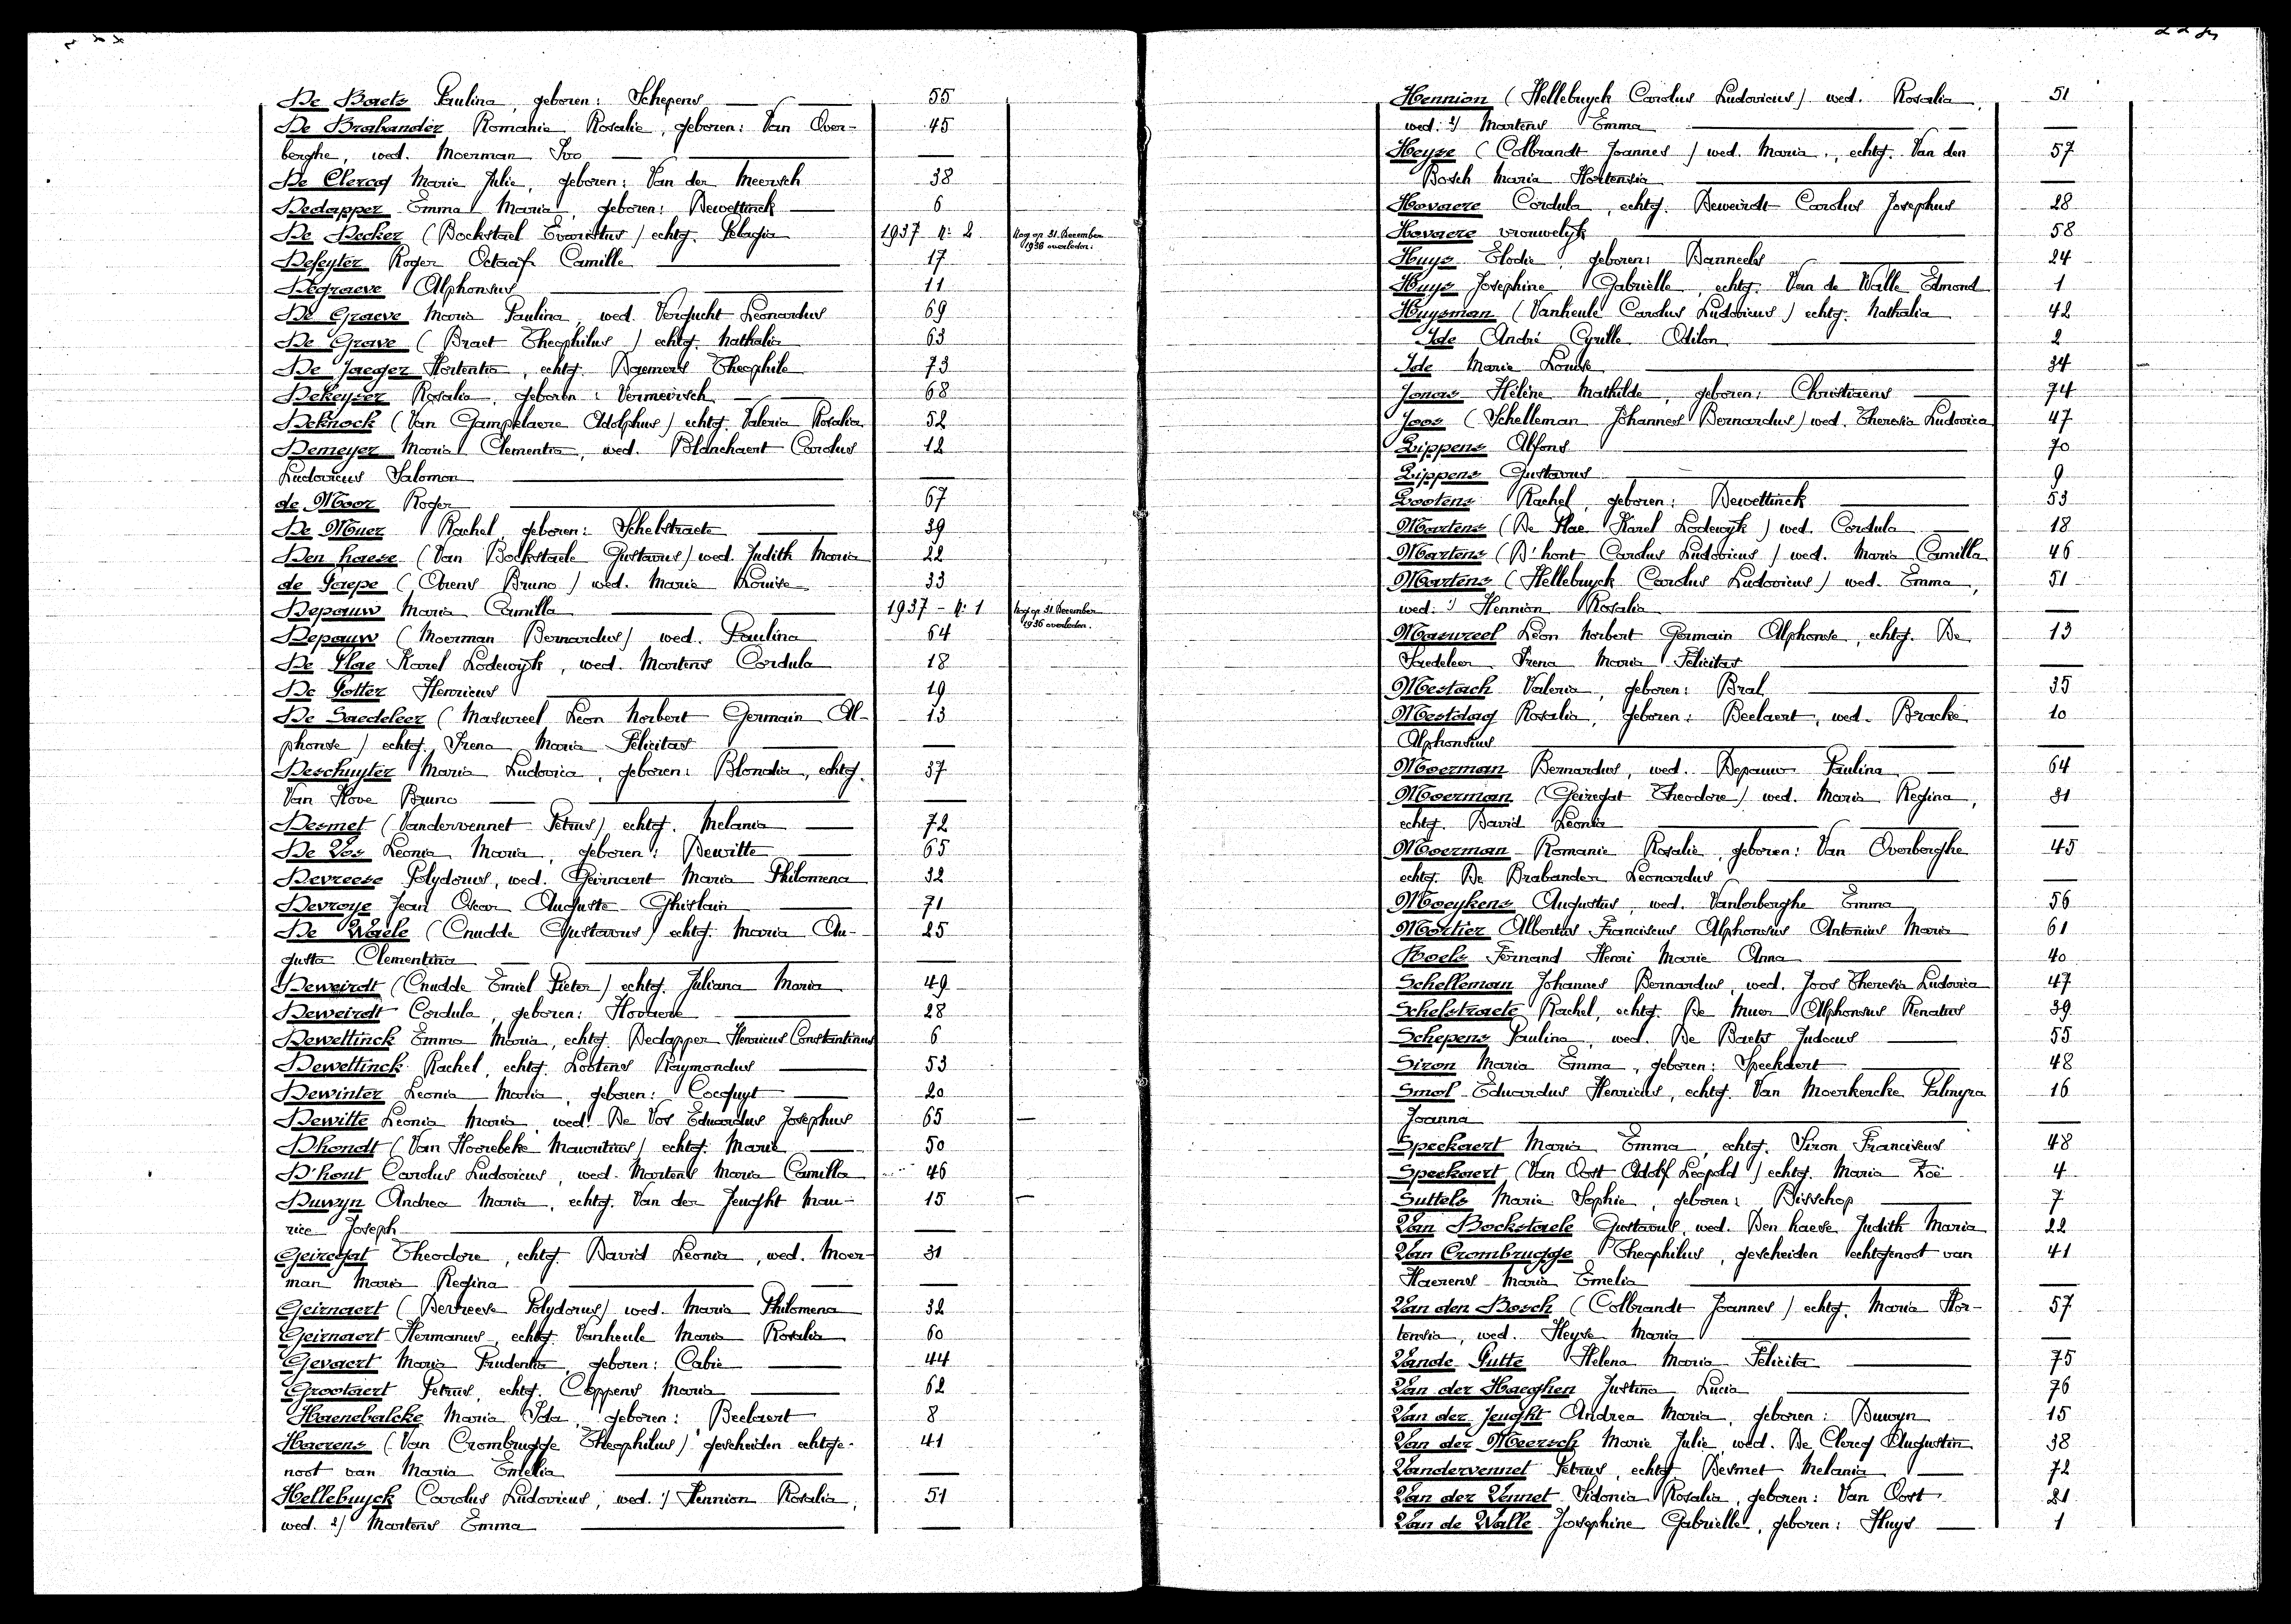 De Baets Paulina, geboren: Schepens 55
De Brabander Romanie Rosalie, geboren: Van Over- 45
berghe, wed. Moerman Ivo
De Clercq Marie Julie, geboren: Van der Meersch 38
Dedapper Emma Maria, geboren: Dewettinck 6
De Decker (Bockstael Evaristus) echtg. Pelagia 1937 n: 2 Nog op 31 December
1936 overleden.
Defeyter Roger Octaaf Camille 17
Degraeve Alphonsus 11
De Graeve Maria Paulina, wed. Vergucht Leonardus 69
De Grave (Braet Theophilus) echtg. Nathalia 63
De Jaeger Hortentia, echtg. Dgemers Theophile 73
Dekeyser Rosalia, geboren: Vermeirsch 68
Deknock (Van Gampelaere Adolphus) echtg. Valeria Rosalia 52
Demeyer Maria Clementia, wed. Blanchaert Carolus 12
Ludovicus Salomon
de Moor Roger 67
De Muer Rachel, geboren: Schelstraete 39
Den haese (Van Bockstaele Gustavus) wed. Judith Maria 22
de Paepe (Arens Bruno) wed. Marie Louise 33
Depauw Maria Camilla 1937 - n: 1 Nog op 31 December
1936 overleden.
Depauw (Moerman Bernardus) wed. Paulina 64
De Plae Karel Lodewijk, wed. Martens Cordula 18
De Potter Henricus 19
De Saedeleer (Masureel Leon Norbert Germain Al- 13
phonse) echtg. Irena Maria Felicitas
Deschuyter Maria Ludovica, geboren: Blondia, echtg. 37
Van Hove Bruno
Desmet (Vandervennet Petrus) echtg. Melania 72
De Vos Leonia Maria, geboren: Dewitte 65
Devreese Polydorus, wed. Geirnaert Maria Philomena 32
Devroye Jean Oscar Auguste Ghislain 71
De Waele (Cnudde Gustavus) echtg. Maria Au- 25
gusta Clementina
Deweirdt (Cnudde Emiel Pieter) echtg. Juliana Maria 49
Deweirdt Cordula, geboren: Hovaere 28
Dewettinck Emma Maria, echtg. Dedapper Henricus Constantinus 6
Dewettinck Rachel, echtg. Lootens Raymondus 53
Dewinter Leonia Maria, geboren: Cocquyt 20
Dewitte Leonia Maria, wed. De Vos Eduardus Josephus 65
Dhondt (Van Hoorebeke Mauritius) echtg. Marie 50
D'hont Carolus Ludovicus, wed. Martens Maria Camilla 46
Duwyn Andrea Maria, echtg. Van der Jeught Mau- 15
rice Joseph
Geiregat Theodore, echtg. David Leonia, wed. Moer- 31
man Maria Regina
Geirnaert (Devreese Polydorus) wed. Maria Philomena 32
Geirnaert Hermanus, echtg. Vanheule Maria Rosalia 60
Gevaert Maria Prudentia, geboren: Cabie 44
Grootaert Petrus, echtg. Coppens Maria 62
Haenebalcke Maria Ida, geboren: Beelaert 8
Haerens (Van Crombrugge Theophilus) gescheiden echtge- 41
noot van Maria Emelia
Hellebuyck Carolus Ludovicus, wed. 1) Hennion Rosalia, 51
wed. 2) Martens Emma
Hennion (Hellebuyck Carolus Ludovicus) wed. Rosalia, 51
wed: 2) Martens Emma
Heyse (Colbrandt Joannes) wed. Maria, echtg. Van den 57
Bosch Maria Hortensia
Hovaere Cordula, echtg. Deweirdt Carolus Josephus 28
Hovaere vrouwelijk 58
Huys Elodie, geboren: Danneels 24
Huys Josephine Gabrielle, echtg. Van de Walle Edmond 1
Huysman (Vanheule Carolus Ludovicus) echtg. Nathalia 42
Ide André Cyrille Odilon 2
Ide Marie Louise 34
Jonas Hélène Mathilde, geboren: Christiaens 74
Joos (Schelleman Johannes Bernardus) wed. Theresia Ludovica 47
Lippens Alfons 70
Lippens Gustavus 9
Lootens Rachel, geboren: Dewettinck 53
Martens (De Plae Karel Lodewijk) wed. Cordula 18
Martens (D'hont Carolus Ludovicus) wed. Maria Camilla 46
Martens (Hellebuyck Carolus Ludovicus) wed. Emma, 51
wed: 1) Hennion Rosalia
Masureel Léon Norbert Germain Alphonse, echtg. De 13
Saedeleer Irena Maria Felicitas
Mestach Valeria, geboren: Bral 35
Mestdag Rosalia, geboren: Beelaert, wed. Bracke 10
Alphonsius
Moerman Bernardus, wed. Depauw Paulina 64
Moerman (Geiregat Theodore) wed. Maria Regina, 31
echtg. David Leonia
Moerman Romanie Rosalie, geboren: Van Overberghe 45
echtg. De Brabander Leonardus
Moeykens Augustus, wed. Vanlerberghe Emma 56
Mortier Albertus Franciscus Alphonsus Antonius Maria 61
Roels Fernand Henri Marie Anna 40
Schelleman Johannes Bernardus, wed. Joos Theresia Ludovica 47
Schelstraete Rachel, echtg. De Muer Alphonsus Renatus 39
Schepens Paulina, wed. De Baets Judocus 55
Siron Maria Emma, geboren: Speckaert 48
Smol Eduardus Henricus, echtg. Van Moerkercke Palmyra 16
Joanna
Speckaert Maria Emma, echtg. Siron Franciscus 48
Speckaert (Van Oost Adolf Leopold) echtg. Maria Zoë 4
Suttels Marie Sophie, geboren: Bisschop 7
Van Bockstaele Gustavus, wed. Den haese Judith Maria 22
Van Crombrugge Theophilus, gescheiden echtgenoot van 41
Haerens Maria Emelia
Van den Bosch (Colbrandt Joannes) echtg. Maria Hor- 57
tensia, wed. Heyse Maria
Vande Putte Helena Maria Felicita 75
Van der Haeghen Justina Lucia 76
Van der Jeught Andrea Maria, geboren: Duwyn 15
Van der Meersch Marie Julie, wed. De Clercq Augustin 38
Vandervennet Petrus, echtg. Desmet Melania 72
Van der Vennet Sidonia Rosalia, geboren: Van Oost 21
Van de Walle Josephine Gabrielle, geboren: Huys 1